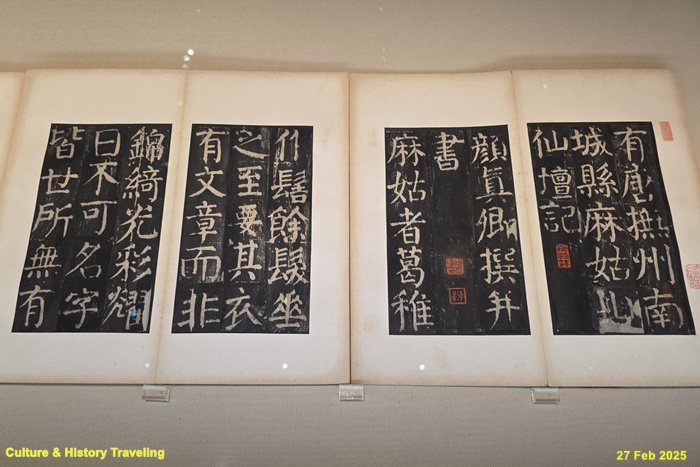 有唐撫州南
城縣麻姑山
仙壇記
顏眞卿撰并
書
麻姑者葛稚
作髻餘髮垂
之至要其衣
有文章而非
錦綺光彩耀
日不可名字
皆世所無有
Culture & History Traveling
27 Feb 2025